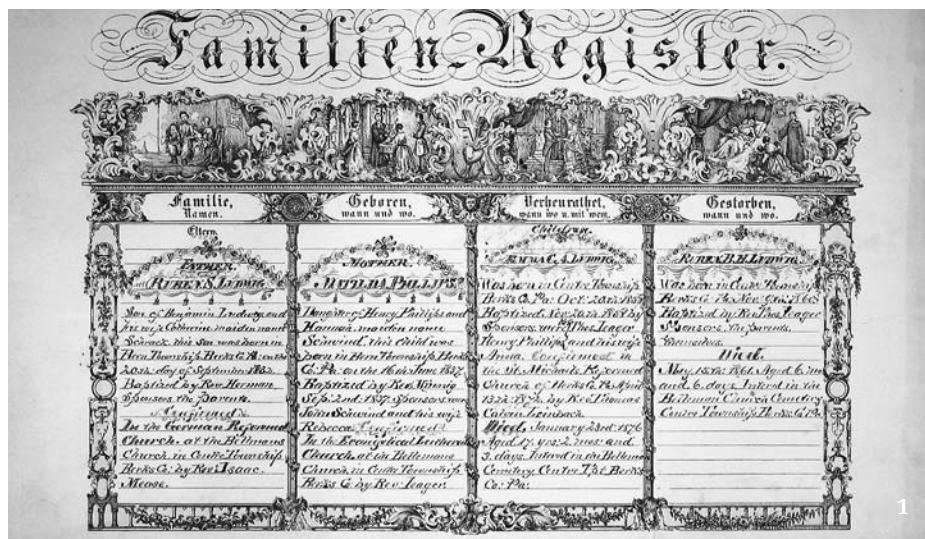 Familien-Register.
Familie,
Namen.
Geboren,
wann und wo.
Verheurathet,
wann wo u. mit wem.
Gestorben,
wann und wo.
Eltern
FATHER.
RUBEN S. LUDWIG.
Son of Benjamin Ludwig and
his wife maiden name
Schrack. this son was born in
Bern Township. Berks Co. Pa: on the
20th. day of September
Baptized by Rev. Herman
Sponsors the parents.
Confirmed
In the German Reformed
Church. at the Bellmans
Church in Centre Township
Berks Co: by Rev: Isaac
Meose.
MOTHER.
MATILDA PHILLIPS.
Daughter of Henry Phillips and
Hannah. maiden name
Schwind this child was
born in Bern Township Berks
Co. Pa: on the 16th June 1837.
Baptized by Rev. Minnig
Sep. 2nd. 1837. Sponsors were
John Schwind and his wife
Rebecca Confirmed
In the Evangelical Lutheran
Church. at the Bellemans
Church in Centre Township
Berks Co. by Rev. Leager.
Children.
EMMA C. A. LUDWIG.
Was born in Centre Township
Berks Co. Pa: Oct: 20th. 1858
Baptized Nov: 20th. 1858 by
Sponsors. were Leager
Henry Phillips and his wife
Anna. Confirmed in
the St. Michaels Reformed
Church of Berks Co. Pa April
13th: by Rev. Thomas
Calvin Leinbach.
Died. January 23rd. 1876
Aged 17. yrs: 2. mos: and
3. days. Interd in the Belleman
Cemetery. Centre T'sp Berks
Co: Pa:
RUBEN B. H. LUDWIG.
Was born in Centre Township
Berks Co. Pa. Nov: 9th: 1860.
Baptized by Rev. Leager
Sponsors. the parents.
themselves.
Died.
May. 15th: 1861. Aged 6. mo
and 6. days. Interd in the
Belleman Church Cemetery
Centre Township Berks Co. Pa.
1